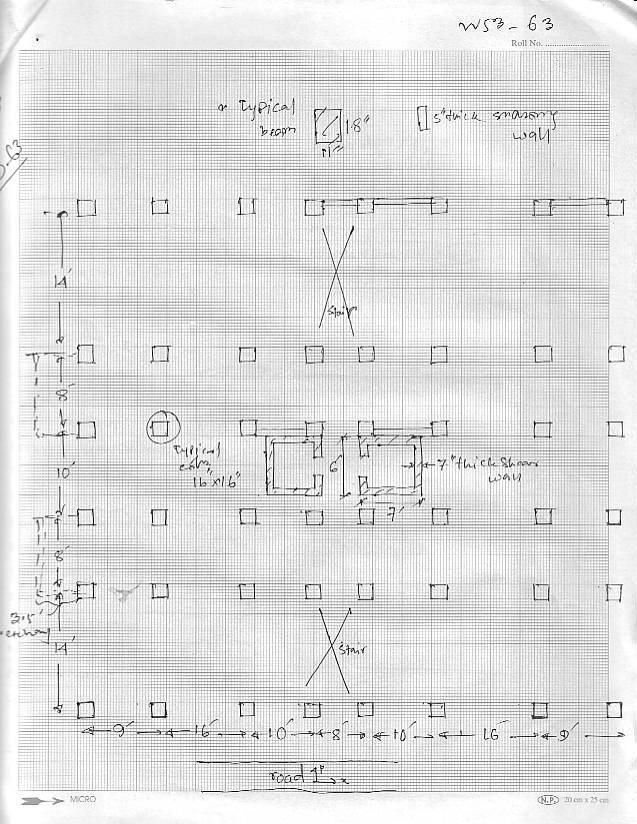 WS3-63
Roll No.
Typical
beam
18"
11"
5" thick masonry
wall
14'
stair
8'
Typical
colm
16"x16"
10'
6'
7" thick shear
wall
7'
8'
3.5'
14'
stair
9' 16' 10' 8' 10' 16' 9'
road y
x
MICRO
N.P. 20 cm x 25 cm